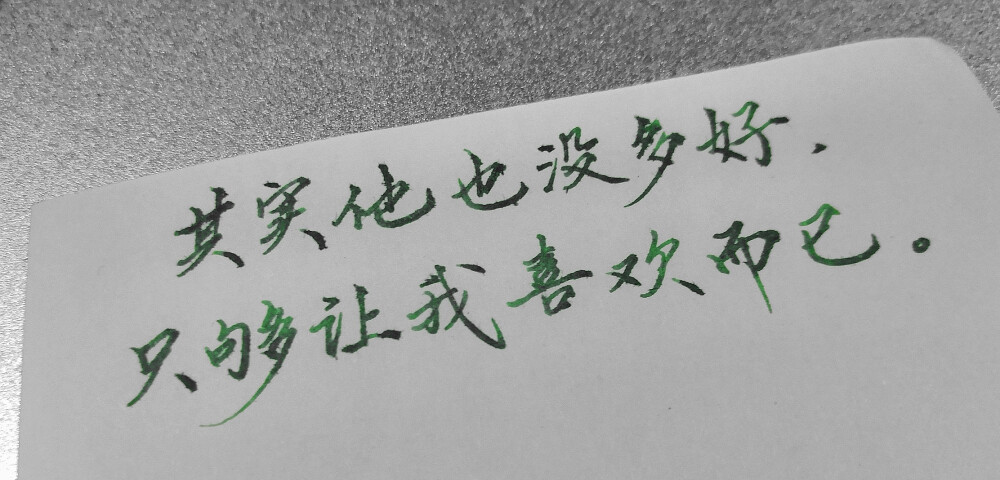 其实他也没多好.
只够让我喜欢而已。